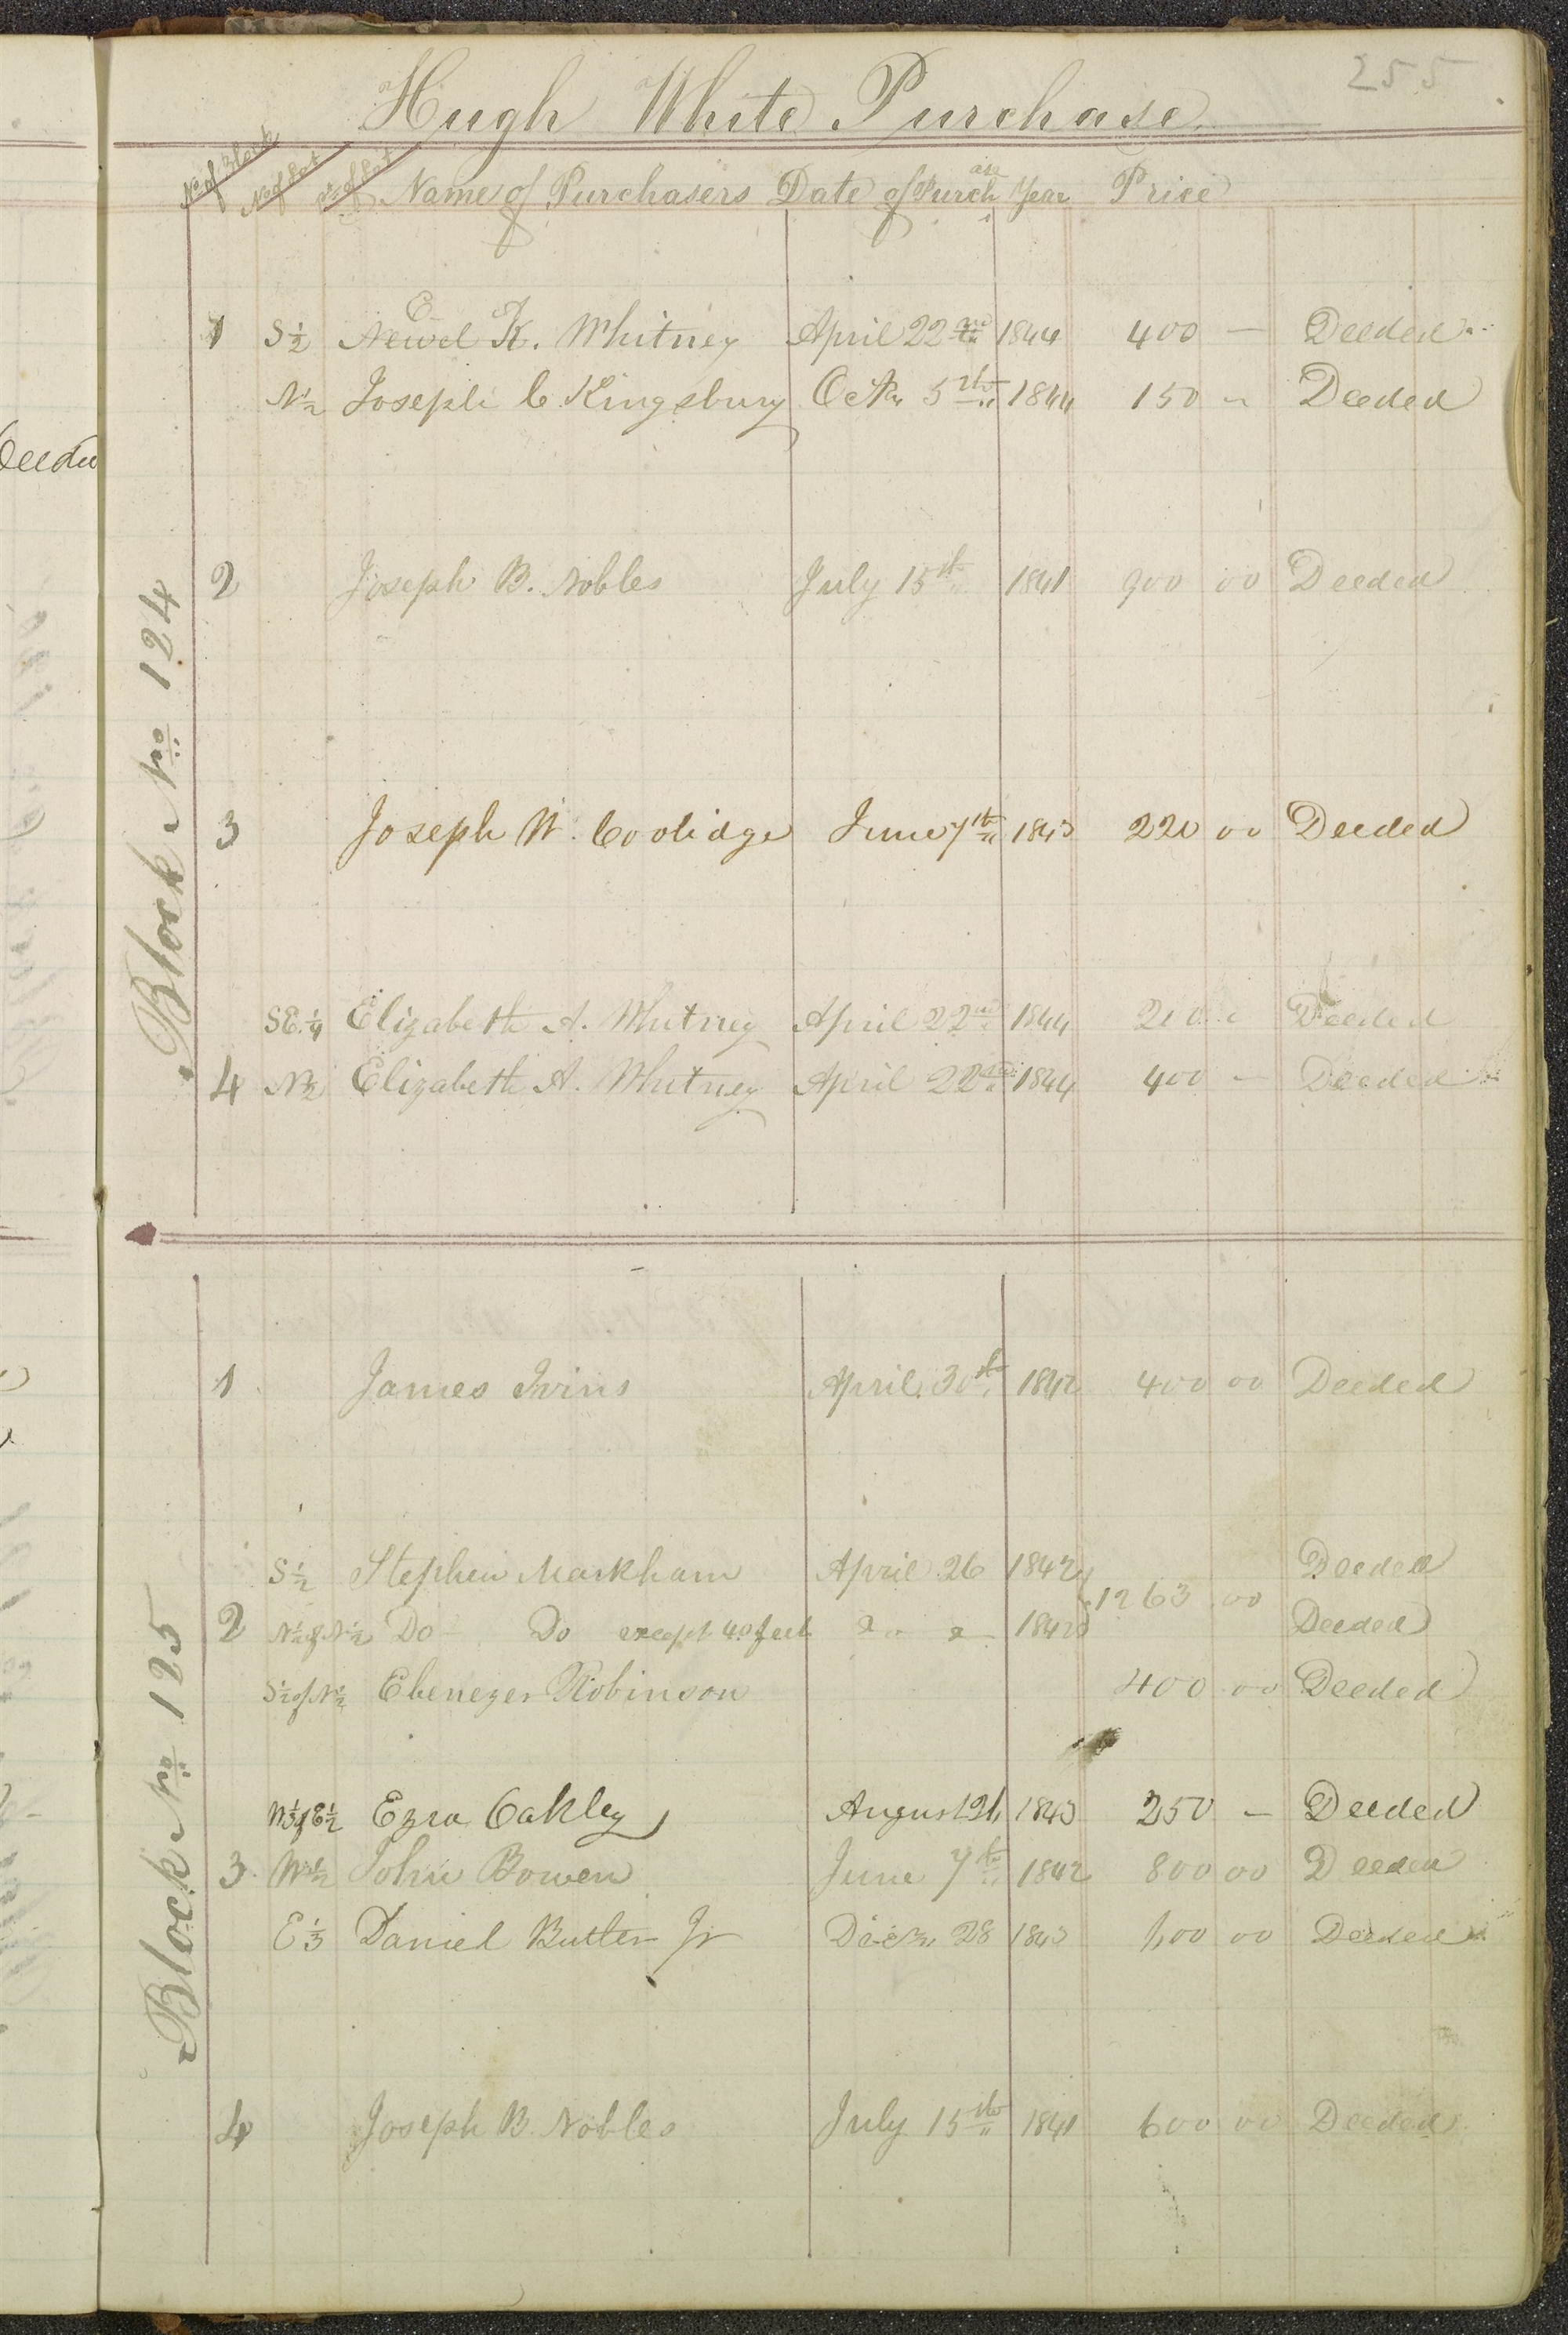 255
Hugh White Purchase
No of Block No of Lot Pt of Lot Name of Purchasers Date of Purchase Year Price
Block No 124
1 S 1/2 Newel K. Whitney April 22nd 1844 400 — Deeded
N 1/2 Joseph C Kingsbury Oct. 5th 1844 150 " Deeded
Deeded
2 Joseph B. Nobles July 15th 1841 900 00 Deeded
3 Joseph W. Coolidge June 7th 1843 220 00 Deeded
SE. 1/4 Elizabeth A. Whitney April 22nd 1844 Deeded
4 N 1/2 Elizabeth A. Whitney April 22nd 1844 400 — Deeded
Block No 125
1 James Ivins April 30th 1842 400 00 Deeded
S 1/2 Stephen Markham April 26 1842 Deeded
1263 00
2 N 1/2 of N 1/2 Do Do except 40 feet " " 1842 Deeded
S 1/2 of N 1/2 Ebenezer Robinson 400 00 Deeded
W 1/3 of E 1/2 Ezra Oakley August 21, 1843 250 — Deeded
3 W 1/2 John Bowen June 7th 1842 800 00 Deeded
E 1/3 Daniel Butler Jr Decr. 28 1843 00 Deeded
4 Joseph B. Nobles July 15th 1841 600 00 Deeded